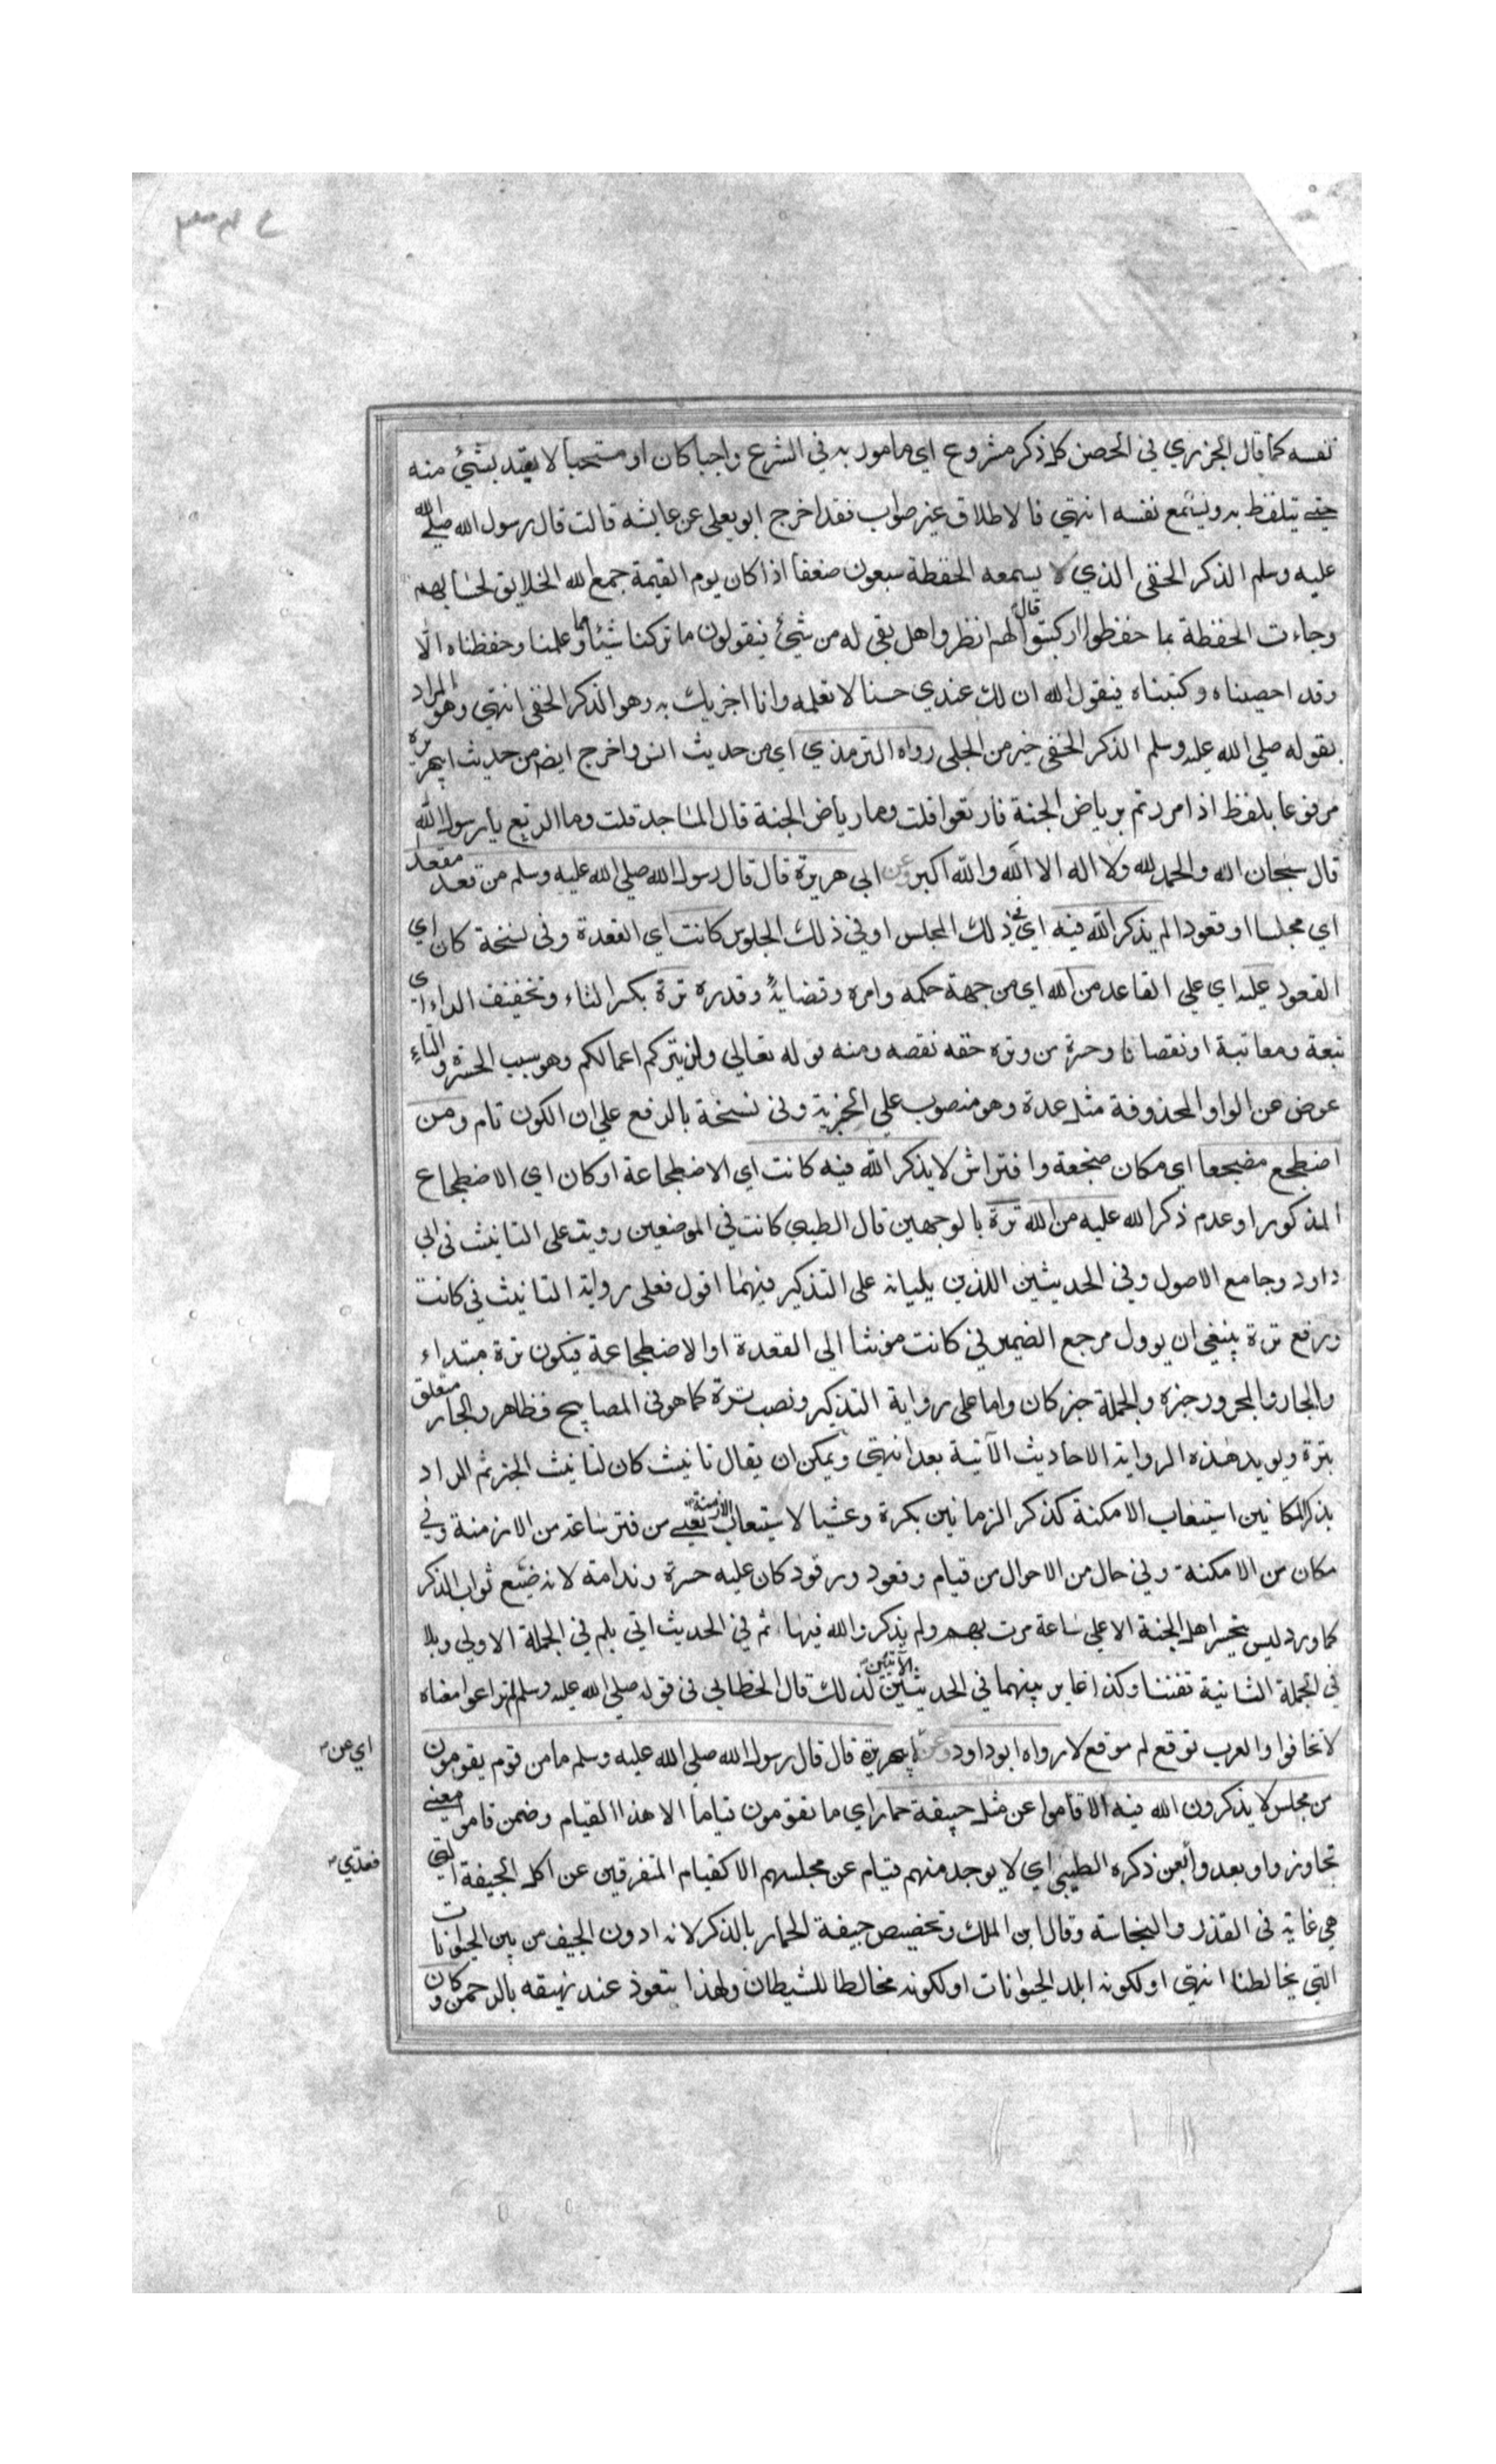 نفسه كما قال الجزري في الحصن كل ذكر مشروع اي مامور به في الشرع واجبا كان او مستحبا لا يعتد بشئ منه
حتى يتلفظ به ويسمع نفسه انتهي فالاطلاق غير صواب فقد اخرج ابو يعلى عن عايشه قالت قال رسول الله صلي الله
عليه وسلم الذكر الخفى الذي لا يسمعه الحفظة سبعون ضعفا اذا كان يوم القيمة جمع الله الخلايق لحسابهم
وجاءت الحفظة بما حفظوا وكتبوا قال لهم انظروا هل بقى له من شئ فيقولون ما تركنا شيئا مما علمنا وحفظناه الا
وقد احصيناه وكتبناه فيقول الله ان لك عندي حسنا لا تعلمه وانا اجزيك به وهو الذكر الخفى انتهي وهو المراد
بقوله صلي الله عليه وسلم الذكر الخفى خير من الجلى رواه الترمذي اي من حديث انس واخرج ايضا من حديث ابي هريرة
مرفوعا بلفظ اذا مررتم برياض الجنة فارتعوا قلت وما رياض الجنة قال المساجد قلت وما الرتع يا رسول الله
قال سبحان الله والحمد لله ولا اله الا الله والله اكبر وعن ابي هريرة قال قال رسول الله صلي الله عليه وسلم من قعد مقعدا
اي مجلسا او قعودا لم يذكر الله فيه اي في ذلك المجلس او في ذلك الجلوس كانت اي القعدة وفى نسخة كان اي
القعود عليه اي علي القاعد من الله اي من جهة حكمه وامره وقضايه وقدره ترة بكسر التاء وتخفيف الراء اي
تبعة ومعاتبة او نقصانا وحسرة من وتره حقه نقصه ومنه قوله تعالي ولن يتركم اعمالكم وهو سبب الحسرة والتاء
عوض عن الواو المحذوفة مثل عدة وهو منصوب علي الخبرية وفى نسخة بالرفع علي ان الكون تام ومن
اضطجع مضجعا اي مكان ضجعة وافتراش لا يذكر الله فيه كانت اي الاضطجاعة او كان اي الاضطجاع
المذكور او عدم ذكر الله عليه من الله ترة بالوجهين قال الطيبي كانت في الموضعين رويت على التانيث في ابي
داود وجامع الاصول وفي الحديثين اللذين يليانه على التذكير فيهما اقول فعلى رواية التانيث في كانت
ورفع ترة ينبغي ان يوول مرجع الضمير في كانت مؤنثا الي القعدة او الاضطجاعة فيكون ترة مبتداء
والجار والمجرور خبره والجملة خبر كان واما على رواية التذكير ونصب ترة كما هو فى المصابيح فظاهر والجار متعلق
بترة ويويد هذه الرواية الاحاديث الآتية بعد انتهي ويمكن ان يقال تانيث كان لتانيث الخبر ثم المراد
بذكر المكانين استيعاب الامكنة كذكر الزمانين بكرة وعشيا لاستيعاب الازمنة يعنى من فتر ساعة من الازمنة وفي
مكان من الامكنة وفي حال من الاحوال من قيام وقعود ورقود كان عليه حسرة وندامة لانه ضيع ثواب الذكر
كما ورد ليس يتحسر اهل الجنة الا علي ساعة مرت بهم ولم يذكروا الله فيها ثم في الحديث اتي بلم في الجملة الاولي وبلا
في الجملة الثانية تفننا وكذا غاير بينهما في الحديثين الآتيين لذلك قال الخطابي فى قوله صلي الله عليه وسلم لم تراعوا معناه
لا تخافوا والعرب توقع لم موقع لا رواه ابو داود وعن ابي هريرة قال قال رسول الله صلي الله عليه وسلم ما من قوم يقومون
من مجلس لا يذكرون الله فيه الا قاموا عن مثل جيفة حمار اي ما يقومون قياما الا هذا القيام وضمن قاموا معنى
اي عن
تجاوزوا وبعدوا بعن ذكره الطيبي اي لا يوجد منهم قيام عن مجلسهم الا كقيام المتفرقين عن اكل الجيفة التي
فعدي
هي غاية فى القذر والنجاسة وقال ابن الملك وتخصيص جيفة الحمار بالذكر لانه ادون الجيف من بين الحيوانات
التي يخالطنا انتهي او لكونه ابلد الحيوانات او لكونه مخالطا للشيطان ولهذا يتعوذ عند نهيقه بالرحمن وكان